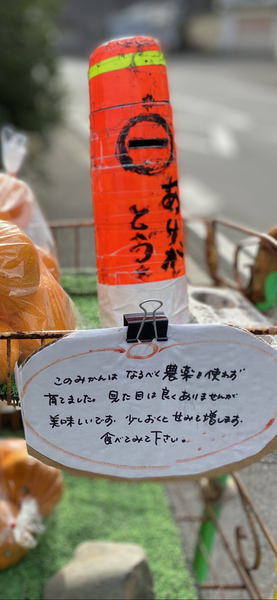 ありがとう
このみかんは なるべく農薬を使わず
育てました。見た目は良くありませんが
美味しいです。少しおくと甘みも増します。
食べてみて下さい。